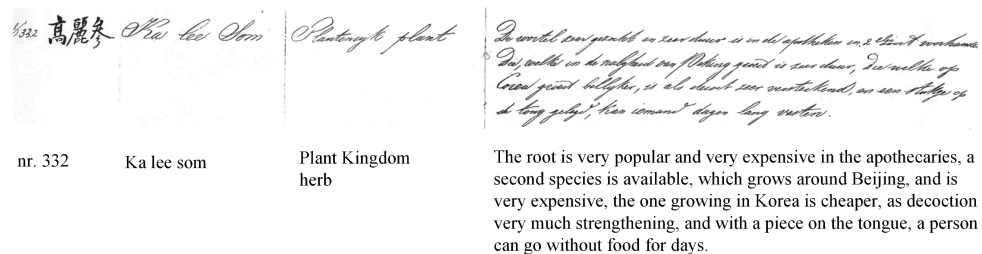 332 高麗參
Ka lee Som
Plantenryk plant
De wortel zeer gezocht en zeer duur is in de apotheken in 2
Die, welke in de nabyheid van Peking groeit is zeer duur, Die welke op
Corea groeit billyker, is als decoct zeer versterkend, en een stukje op
de tong gelegd, kan iemand dagen lang vasten.
nr. 332
Ka lee som
Plant Kingdom
herb
The root is very popular and very expensive in the apothecaries, a
second species is available, which grows around Beijing, and is
very expensive, the one growing in Korea is cheaper, as decoction
very much strengthening, and with a piece on the tongue, a person
can go without food for days.